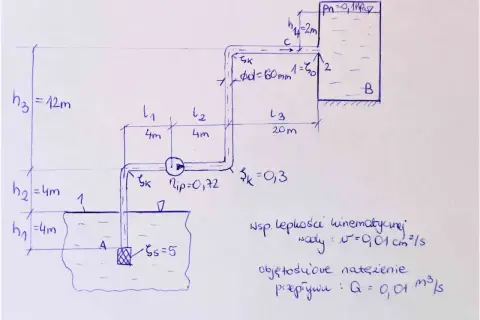 pn=0,1MPa
h4=2m
C
ζk
1=ζo
2
ød=60mm
B
h3=12m
l1
l2
l3
4m
4m
20m
ζk
ηp=0,72
ζk=0,3
h2=4m
1
h1=4m
A
ζs=5
Wsp. lepkości kinematycznej
wody: ν=0,01 cm²/s
Objętościowe natężenie
przepływu: Q=0,01 m³/s